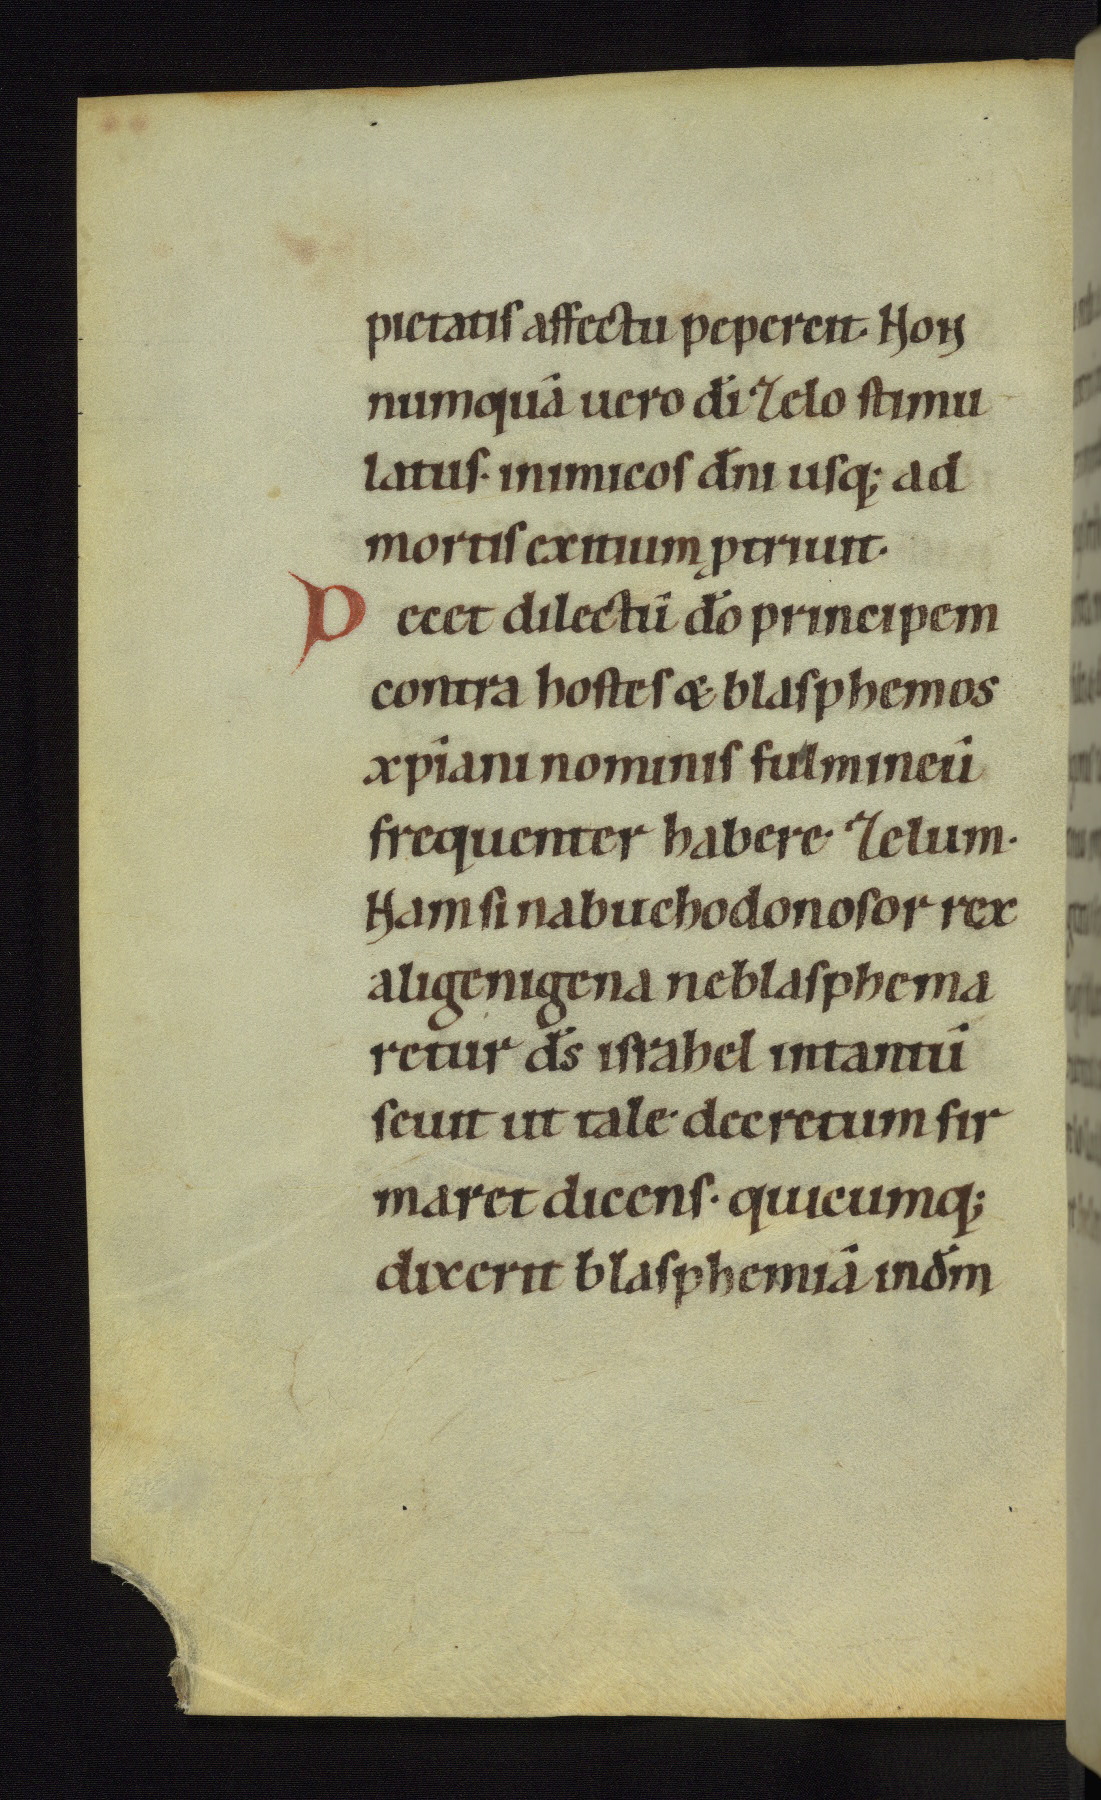 pietatis affectu pepercit. Non
numquā uero dī zelo stimu
latus. inimicos dn̄i usq; ad
mortis exitium ꝑtriuit.
Decet dilectū dō principem
contra hostes & blasphemos
xp̄iani nominis fulmineū
frequenter habere zelum.
Nam si nabuchodonosor rex
aligenigena ne blasphema
retur ds̄ israhel intantū
seuit ut tale decretum fir
maret dicens. quicumq;
dixerit blasphemiā in dm̄